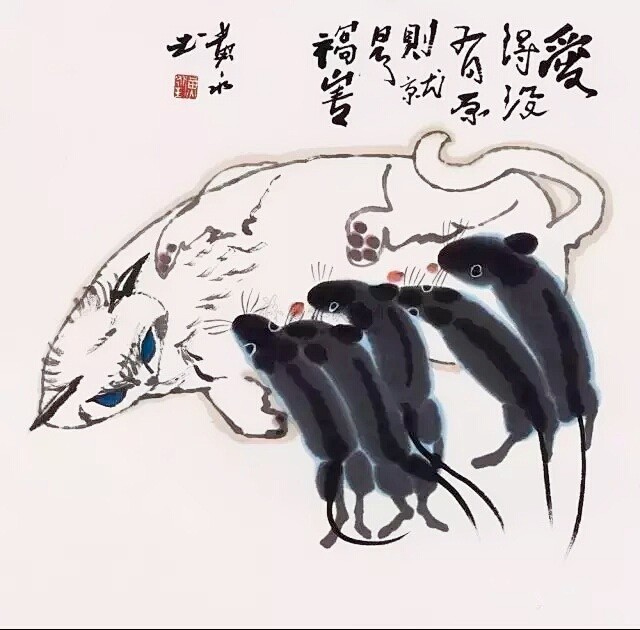 愛
得没
有原
則就
是
禍害
黄永
玉